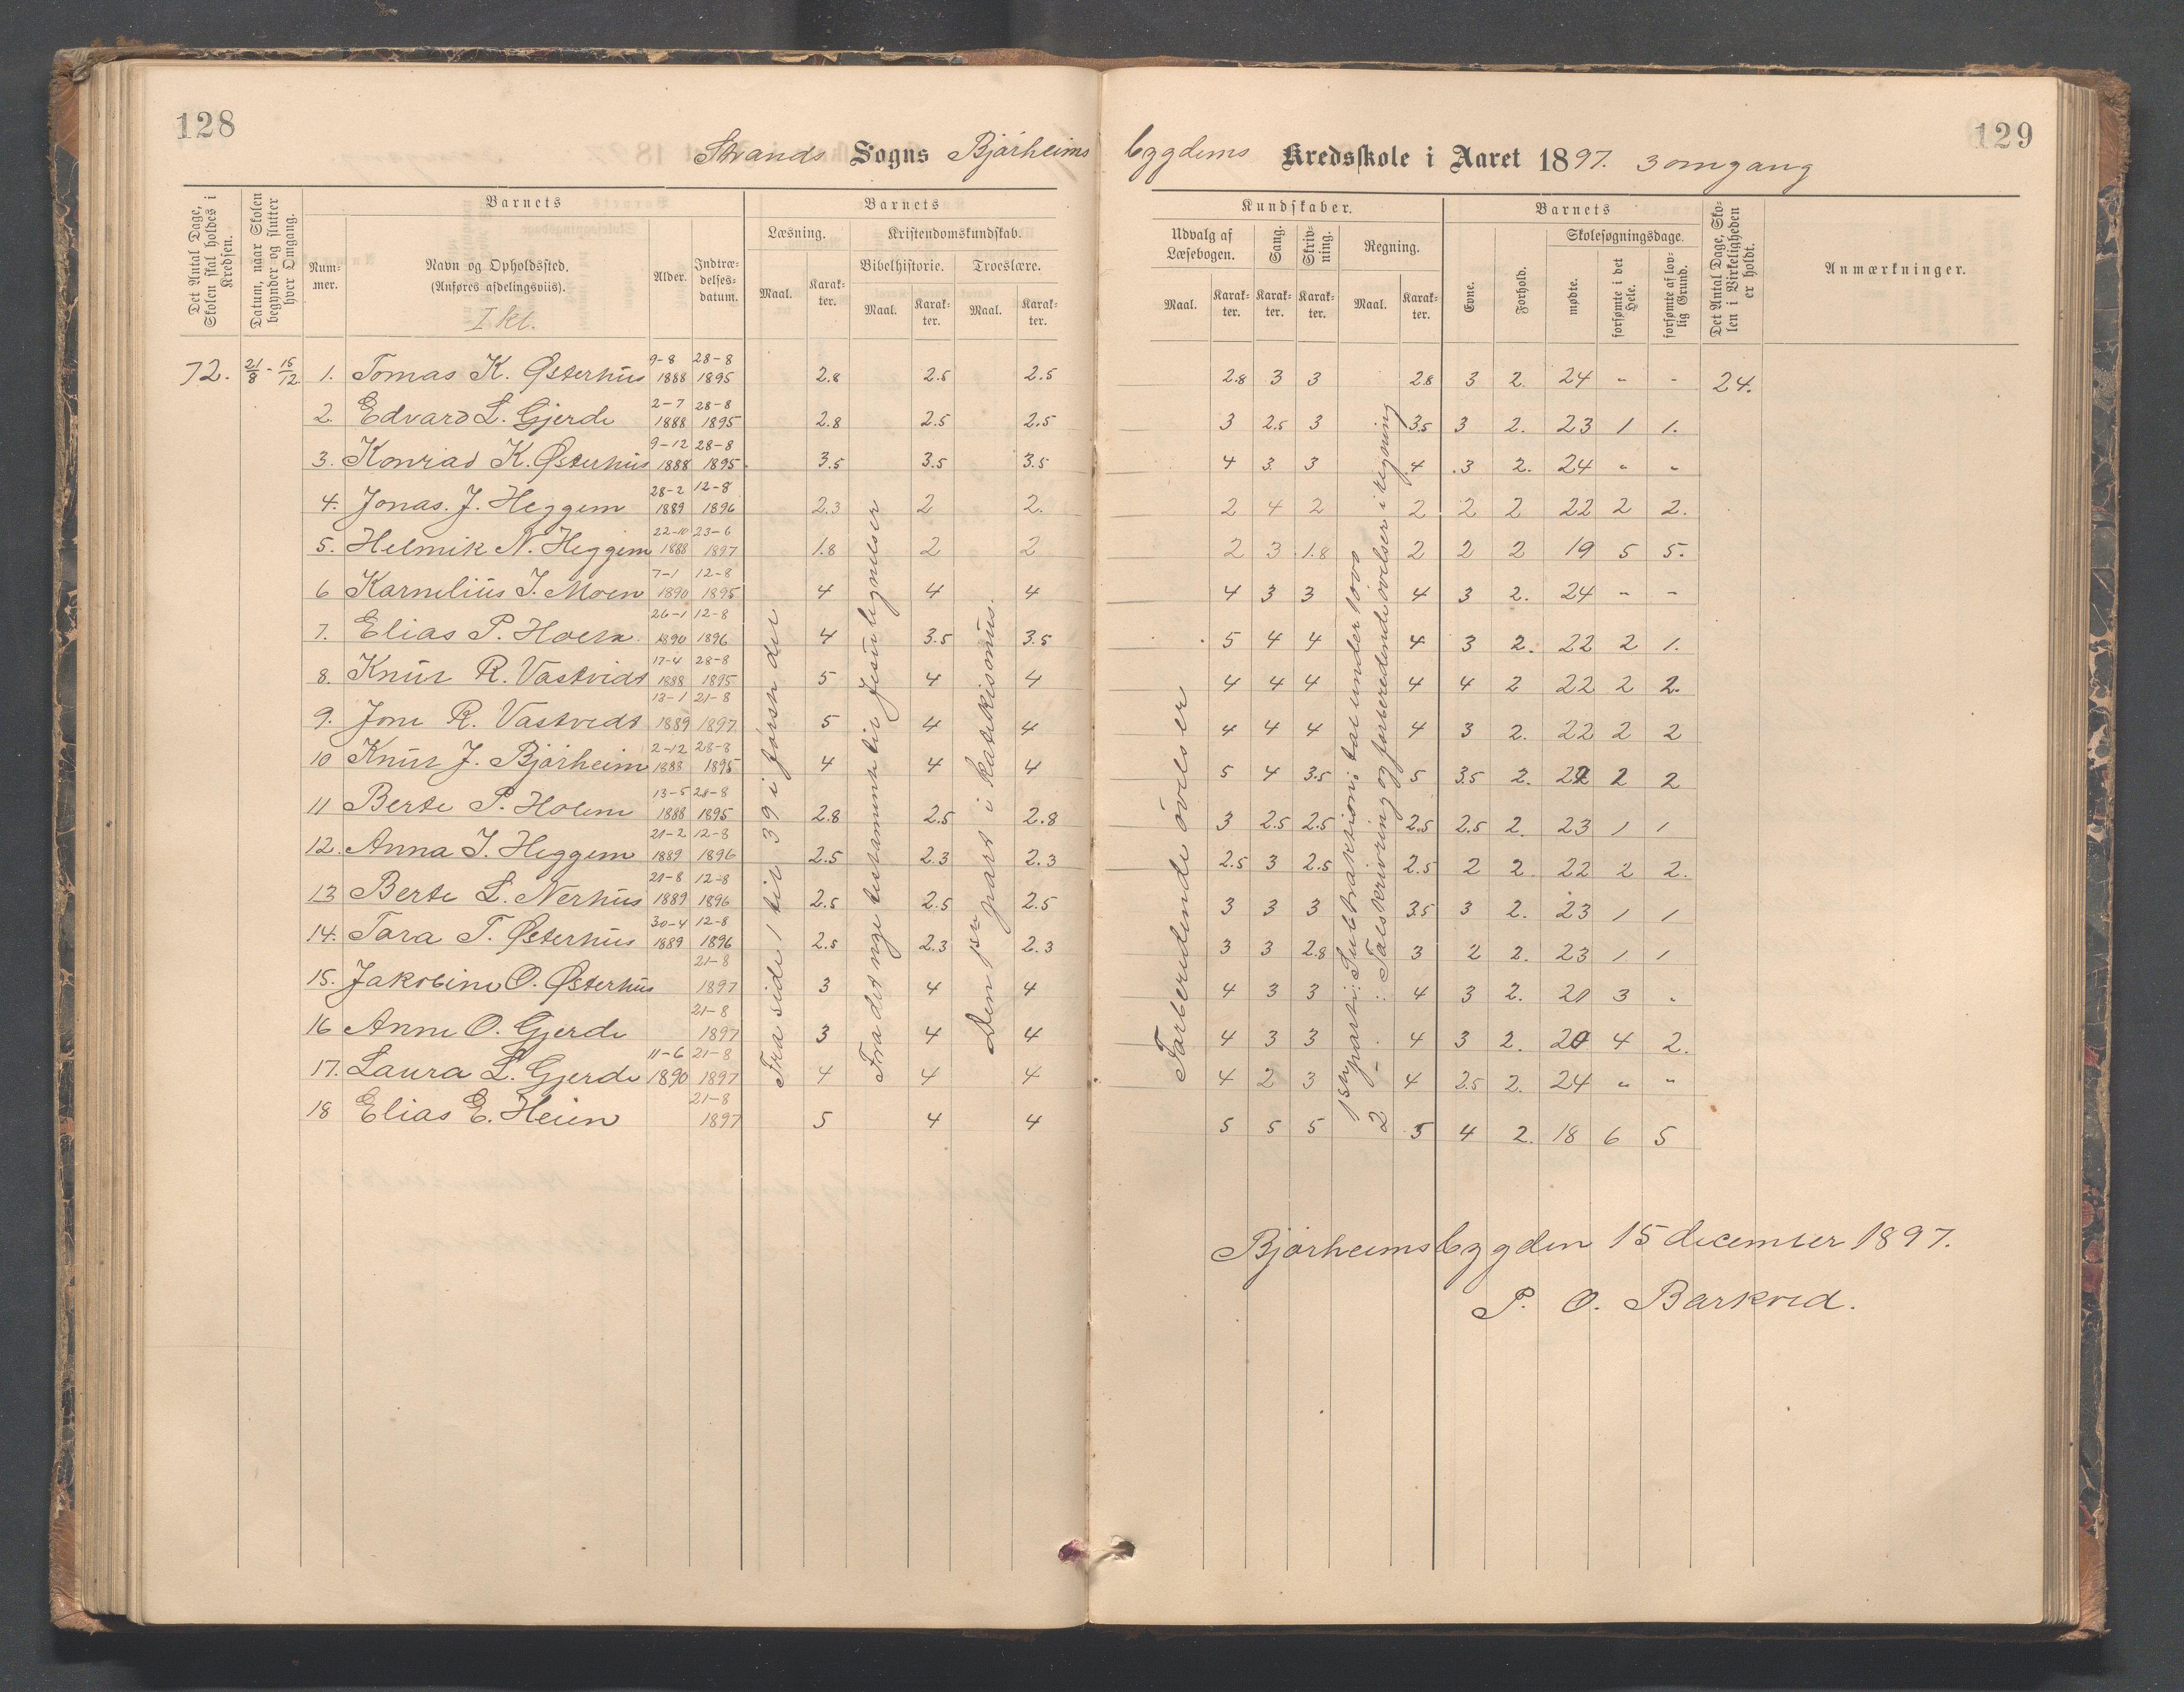 128
129
Strands Sogns Bjårheims bygdens Kredsskole i Aaret 1897. 3 omgang
Det Antal Dage, Skolen skal holdes i Kredsen.
Datum, naar Skolen begynder og slutter hver Omgang.
Barnets
Num-mer.
Navn og Opholdssted. (Anføres afdelingsviis).
I kl.
Alder.
Indtræ-delses-datum.
Barnets
Læsning.
Maal.
Karak-ter.
Kristendomskundskab.
Bibelhistorie.
Maal.
Karak-ter.
Troeslære.
Maal.
Karak-ter.
Kundskaber.
Udvalg af Læsebogen.
Maal.
Karak-ter.
Sang.
Karak-ter.
Skriv-ning.
Karak-ter.
Regning.
Maal.
Karak-ter.
Barnets
Evne.
Forhold.
Skolesøgningsdage.
mødte.
forsømte i det Hele.
forsømte af lov-lig Grund.
Det Antal Dage, Sko-len i Virkeligheden er holdt.
Anmærkninger.
72. 21/8 - 15/12 1. Tomas K. Østerhus 9-8 1888 28-8 1895 2.8 2.5 2.5 2.8 3 3 2.8 3 2. 24 - - 24.
2. Edvard L. Gjerde 2-7 1888 28-8 1895 2.8 2.5 2.5 3 2.5 3 3.5 3 2. 23 1 1.
3. Konrad K. Østerhus 9-12 1888 28-8 1895. 3.5 3.5 3.5 4 3. 3 4 3 2. 24 " "
4. Jonas. J. Heggem 28-2 1889 12-8 1896 2.3 2 2. 2 4 2 2 2 2 22 2 2.
5. Helmik N. Heggem 22-10 1888 23-6 1897 1.8 2 2 2 3 1.8 2 2 2 19 5 5.
6 Karnelius I. Moen 7-1 1890 12-8 1895 4 4 4 4 3 3 4 3 2. 24 - -
7. Elias P. Holm 26-1 1890 12-8 1896 4 3.5 3.5 5 4 4 4 3 2. 22 2 1.
8. Knut R. Vastvidt 17-4 1888 28-8 1895 5 4 4 4 4 4 4 4 2 22 2 2.
9. Jone R. Vastvedt 13-1 1889 21-8 1897 5 4 4 4 4 4 4 3 2. 22 2 2
10 Knut J. Bjårheim 2-12 1888 28-8 1895 4 4 4 5 4 3.5 5 3.5 2. 22 2 2
11 Berte P. Holem 13-5 1888 28-8 1895 2.8 2.5 2.8 3 2.5 2.5 2.5 2.5 2. 23 1 1
12. Anna I. Heggem 21-2 1889 12-8 1896 2.5 2.3 2.3 2.5 3 2.5 2.5 2 2. 22 2 2.
13 Berte L. Nerhus 21-8 1889 12-8 1896 2.5 2.5 2.5 3 3 3 3.5 3 2. 23 1 1
14. Tora T. Østerhus 30-4 1889 12-8 1896 2.5 2.3 2.3 3 3 2.8 3 2 2. 23 1 1
15. Jakobine O. Østerhus 21-8 1897 3 4 4 4 3 3 4 3 2. 21 3 "
16 Anne O. Gjerde 21-8 1897 3 4 4 4 3 3 4 3 2. 20 4 2.
17. Laura L. Gjerde 11-6 1890 21-8 1897 4 4 4 4 2 3 4 2.5 2. 24 " "
18 Elias E. Heien 21-8 1897 5 4 4 5 5 5 5 4 2. 18 6 5
Fra side 1 til 39 i første del
Fra det nye testamente til Jesu lignelser
Den 1ste part i katekismus.
Forberedende øvelser
1ste part: Subtraktion: tal under 1000
2 - : Talskrivning og forberedende øvelser i regning
Bjårheimsbygden 15 december 1897.
P. O. Barkved.